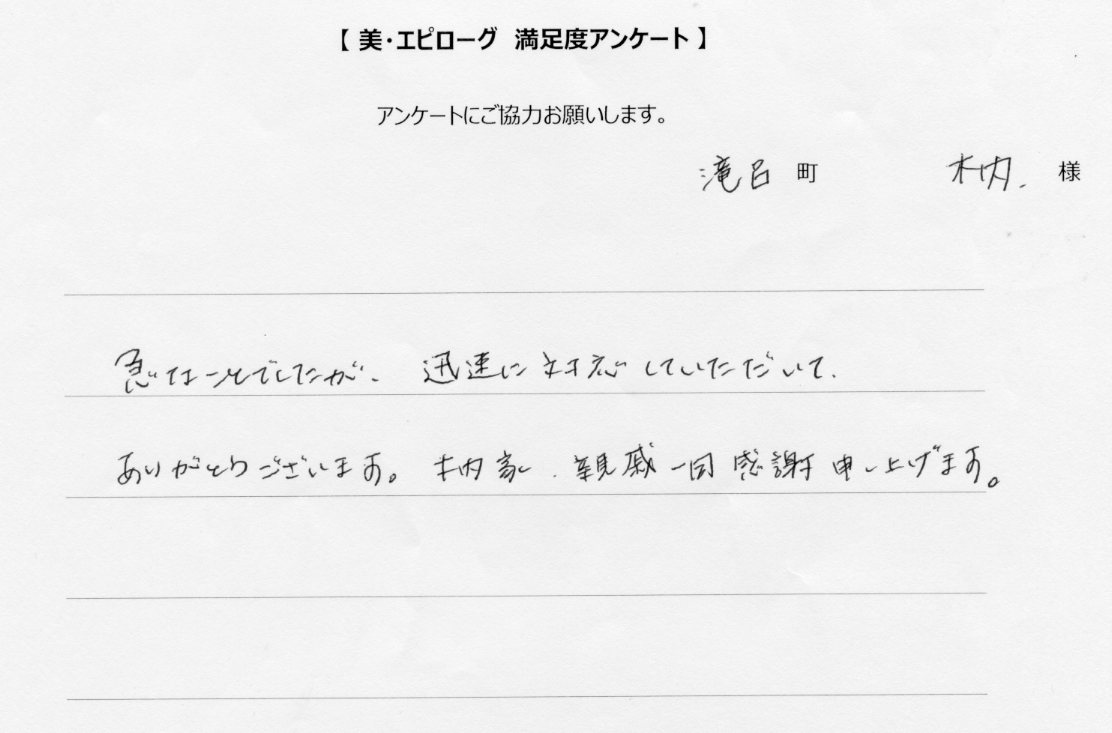 【 美・エピローグ 満足度アンケート 】
アンケートにご協力お願いします。
滝呂 町 木内 様
急なことでしたが、迅速に対応していただいて、
ありがとうございます。木内家、親戚一同感謝申し上げます。